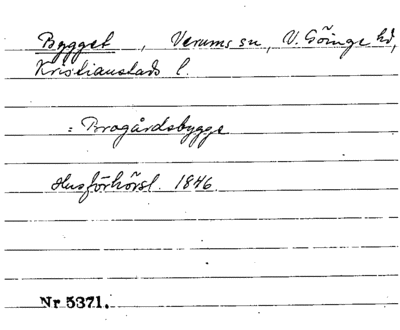 Bygget, Verums sn, V. Göinge hd,
Kristianstads l.
: Bragårdsbygge
Husförhörsl. 1846
Nr 5371.